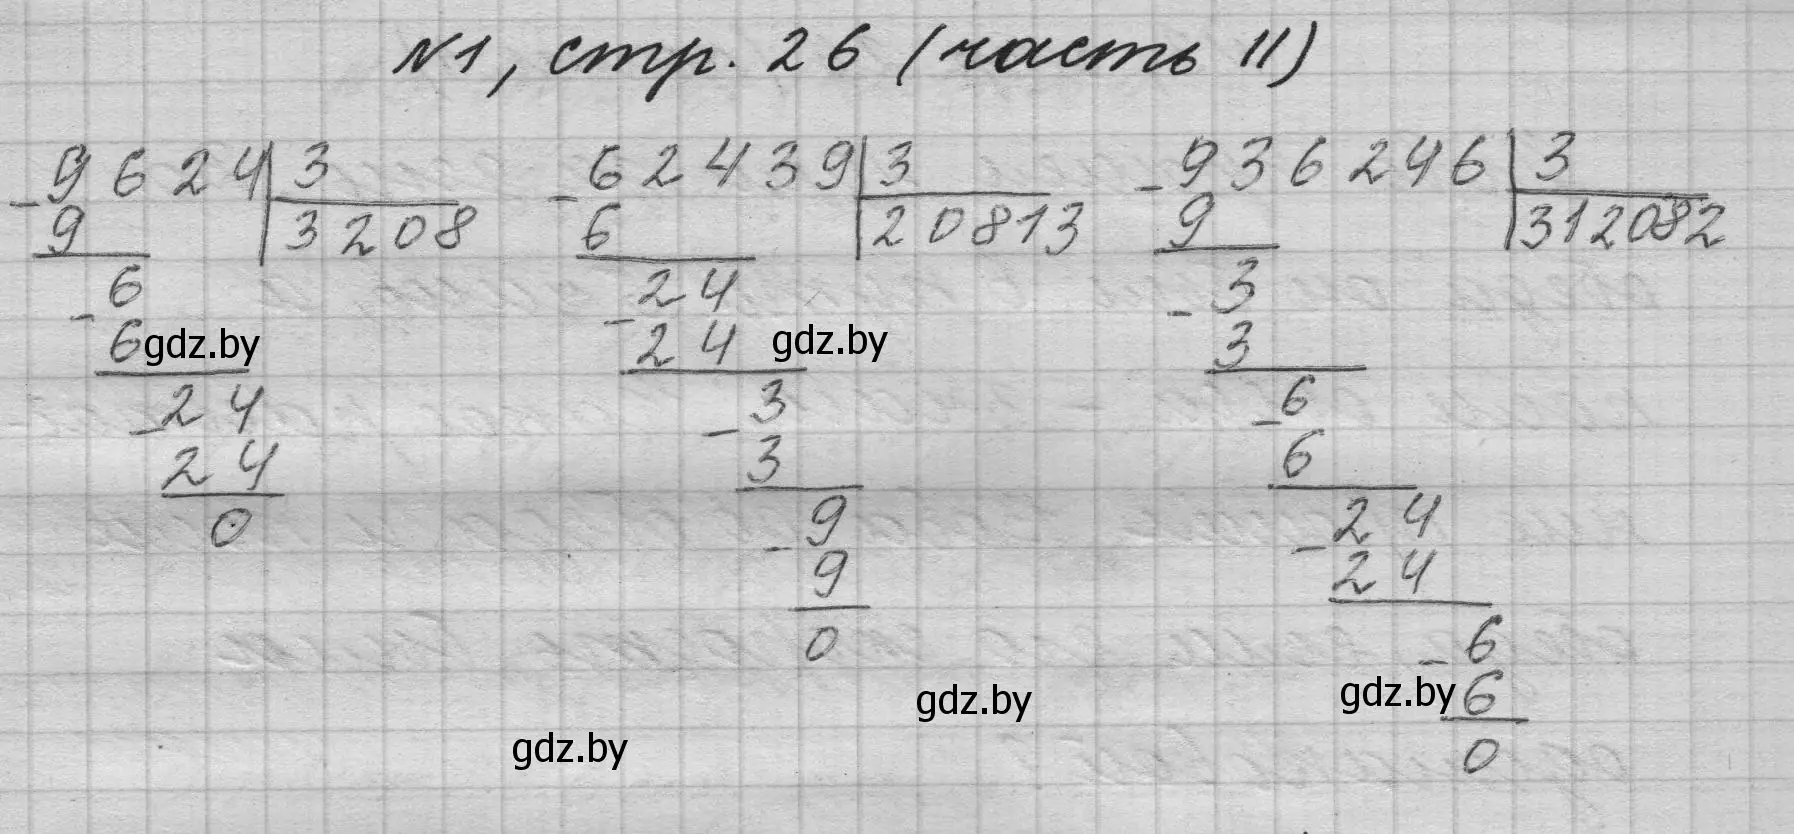 №1, стр. 26 (часть II)
- 9624 | 3
9 | 3208
- 6
6
- 24
24
0
- 62439 | 3
6 | 20813
- 24
24
- 3
3
- 9
9
0
- 936246 | 3
9 | 312082
- 3
3
- 6
6
- 24
24
- 6
6
0
gdz.by
gdz.by
gdz.by
gdz.by
gdz.by